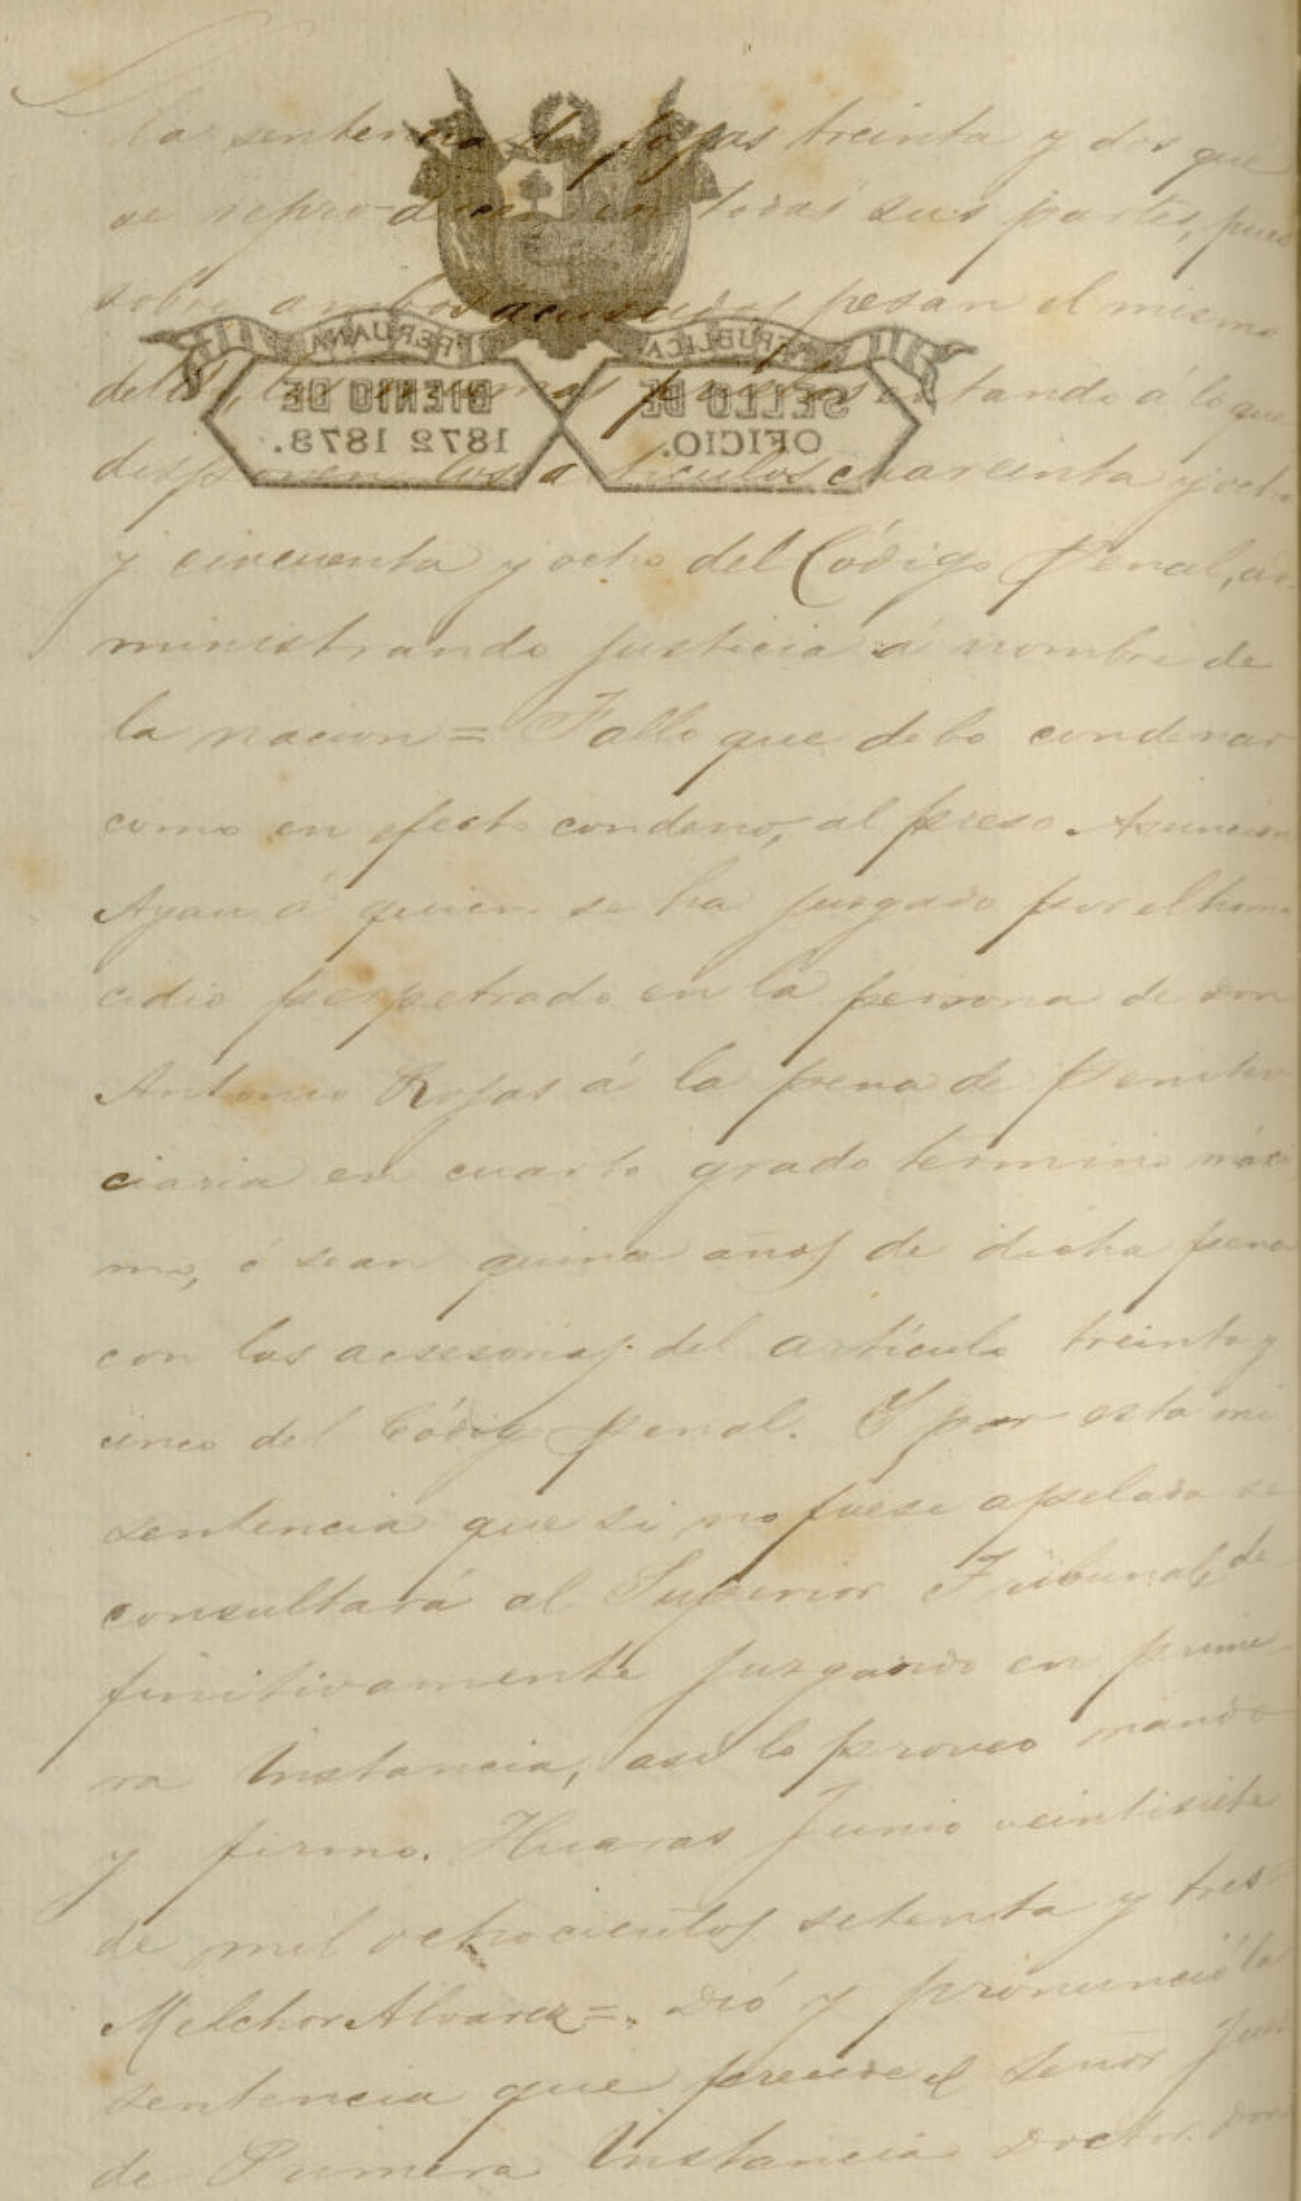 la sentencia de fojas treinta y dos que
se repro-ducen en todas sus partes, pues
sobre ambos acusados pesan el mismo
delito, las mismas pruebas estando á lo que
REPUBLICA PERUANA
SELLO DE OFICIO.
BIENIO DE 1872 1873.
disponen los articulos cuareinta y ocho
y cincuenta y ocho del Código Penal, ad
ministrando justicia á nombre de
la nacion = Fallo que debo condenar
como en efecto condeno, al preso Asuncion
Ayau á quien se ha juzgado por el homi
cidio perpetrado en la persona de don
Antonio Rojas á la pena de Peniten
ciaria en cuarto grado termino máxi
mo, ó sean quince años de dicha pena
con las acsesorias del artículo treinta y
cinco del Código penal. Y por esta mi
sentencia que si no fuese apelada se
consultará al Superior Tribunal, de
finitivamente juzgando en prime
ra Instancia, asi lo proveo mando
y firmo. Huaras Junio veintisiete
de mil ochocientos setenta y tres
Melchor Alvarez =. Dió y pronunció la
sentencia que precede el Señor Juez
de Primera Instancia Doctor Don